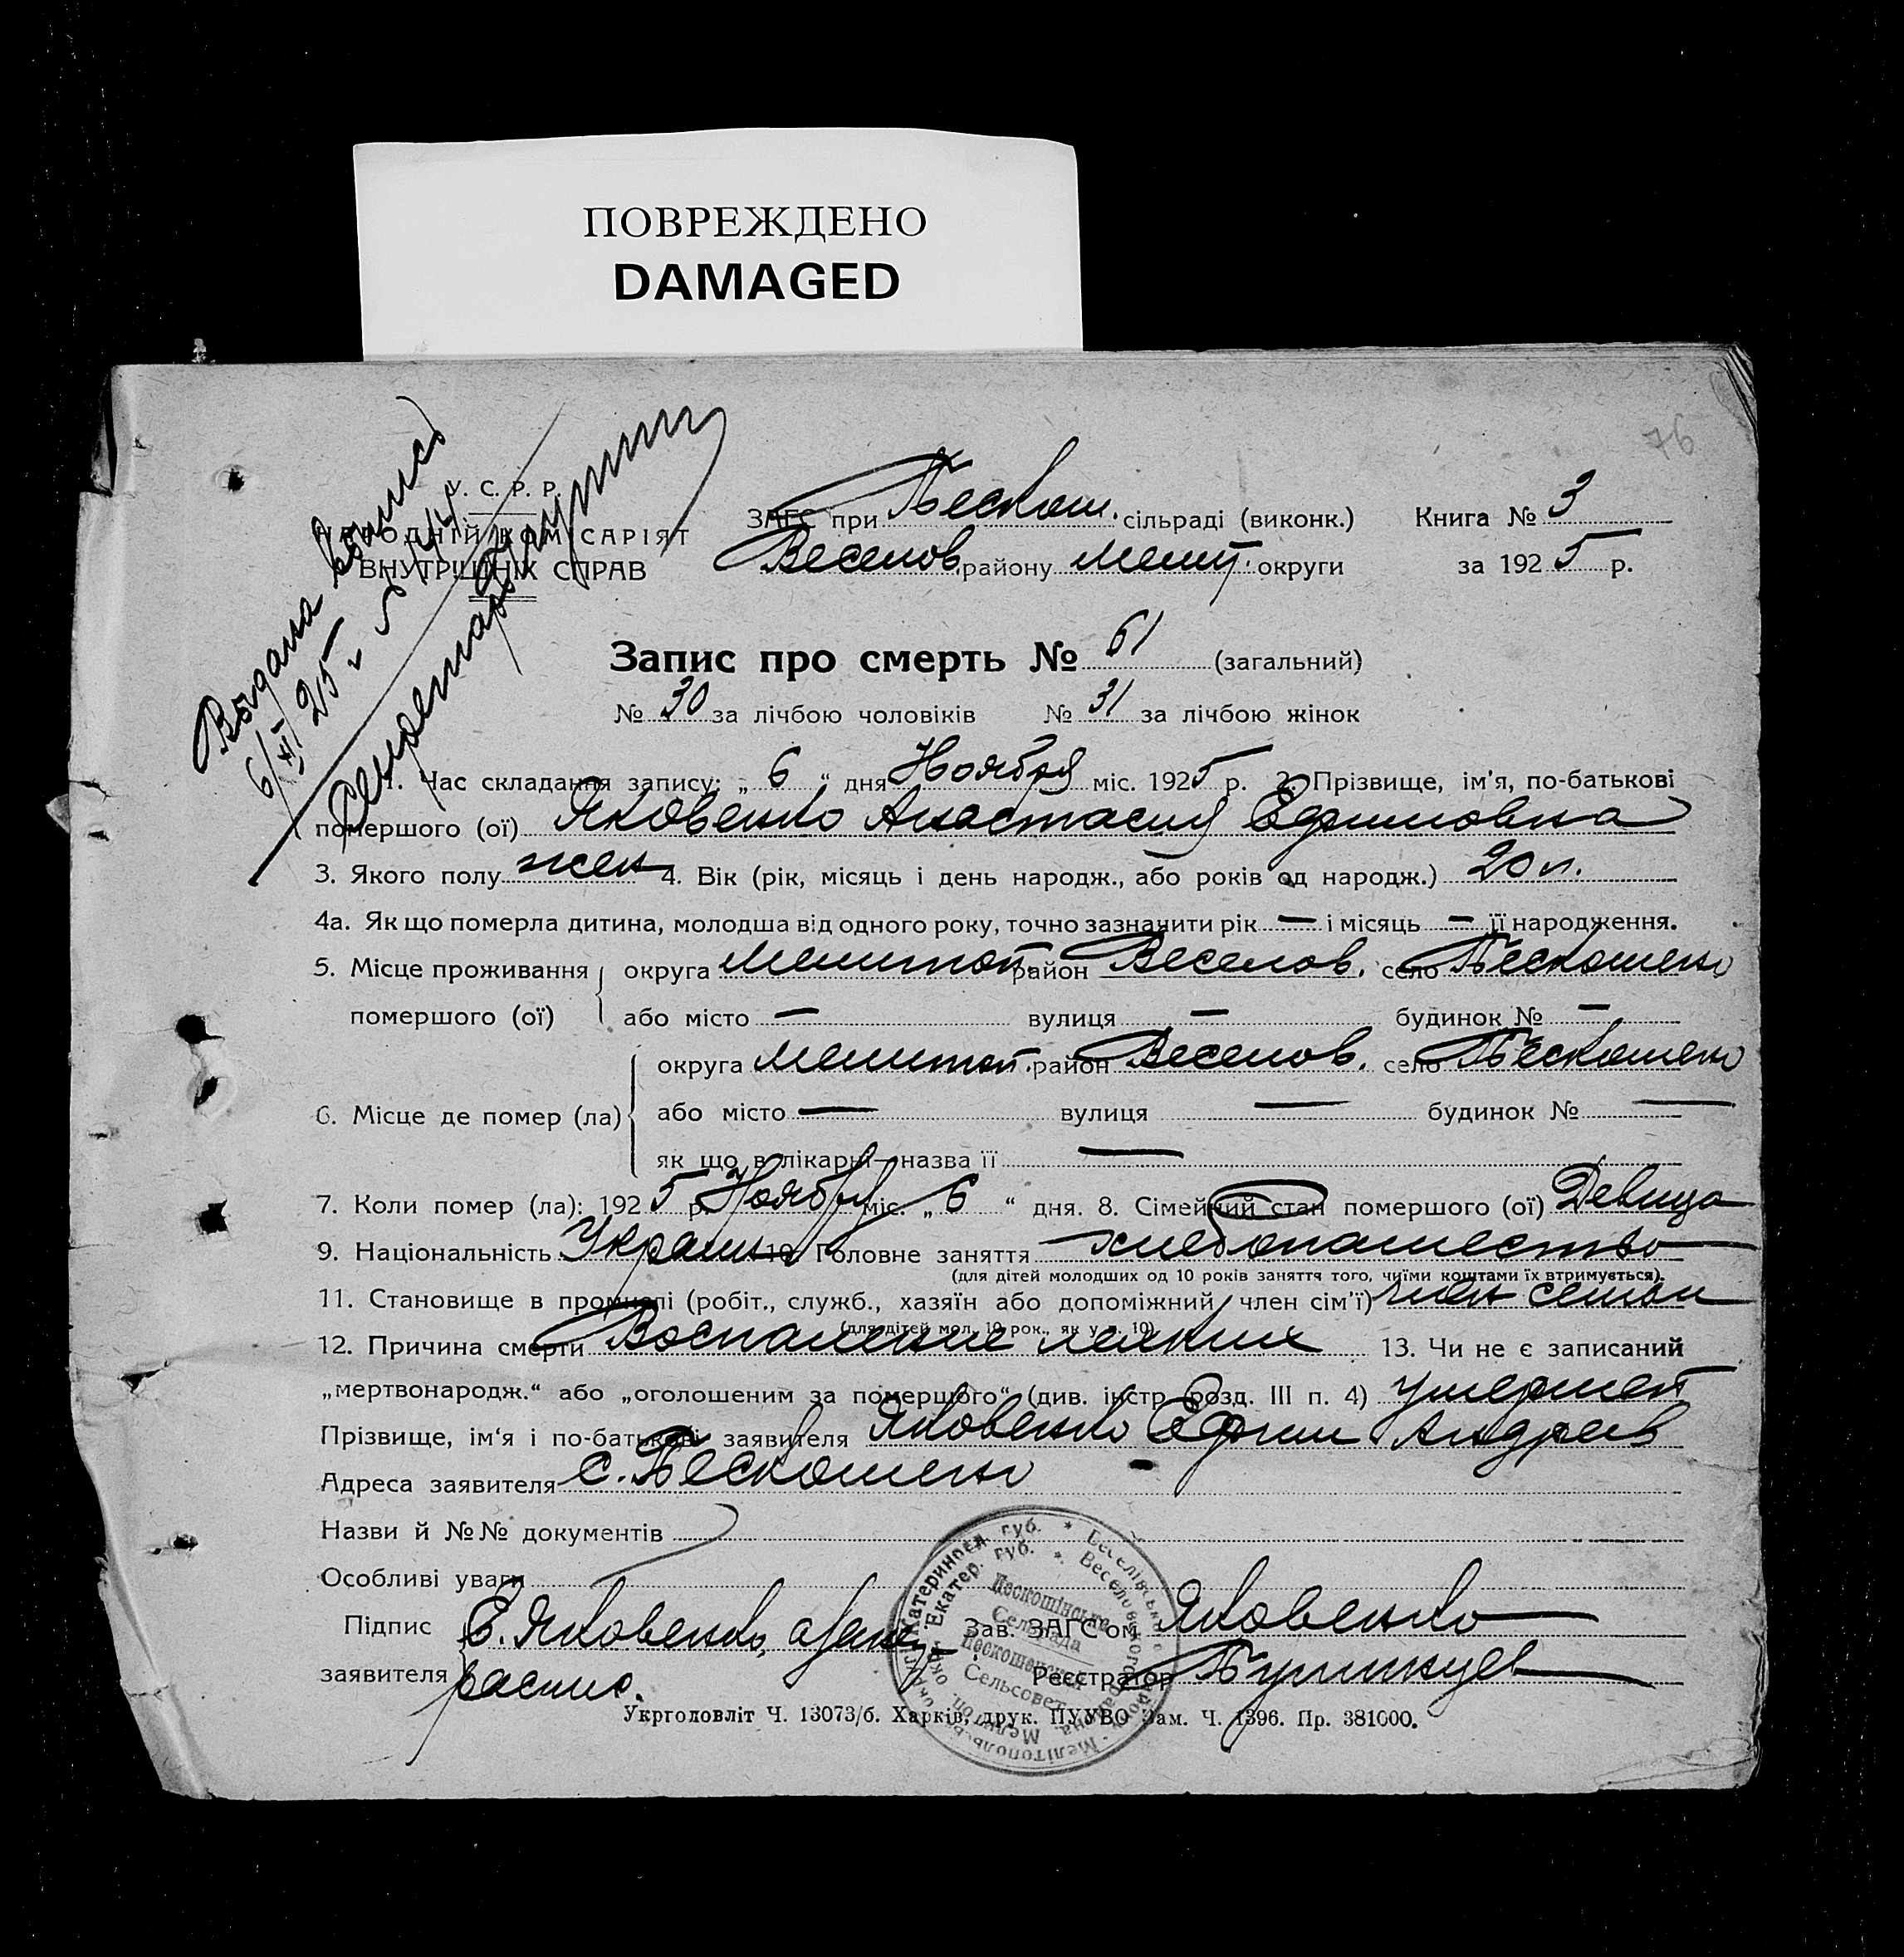 ПОВРЕЖДЕНО
DAMAGED
76
Выдана выпись
6/XI 25 г. №
Секретарь
У. С. Р. Р.
НАРОДНІЙ КОМІСАРІЯТ
ВНУТРІШНІХ СПРАВ
ЗАГС при Пескош. сільраді (виконк.) Книга № 3
Веселов. району Мелит. округи за 1925 р.
Запис про смерть № 61 (загальний)
№ 30 за лічбою чоловіків № 31 за лічбою жінок
1. Час складання запису: „ 6 “ дня Ноября міс. 1925 р. 2. Прізвище, ім'я, по-батькові
помершого (ої) Яковенко Анастасия Ефимовна
3. Якого полу жен 4. Вік (рік, місяць і день народж., або років од народж.) 20 л.
4а. Як що померла дитина, молодша від одного року, точно зазначити рік — і місяць — її народження.
5. Місце проживання округа Мелитоп. район Веселов. село Пескошено
помершого (ої) або місто — вулиця — будинок № —
округа Мелитоп. район Веселов. село Пескошено
6. Місце де помер (ла) або місто — вулиця — будинок № —
як що в лікарні—назва її —
7. Коли помер (ла): 1925 р. Ноября міс. „ 6 “ дня. 8. Сімейний стан помершого (ої) Девица
9. Національність Украин 10. Головне заняття хлебопашество
(для дітей молодших од 10 років заняття того, чиїми коштами їх втримується).
11. Становище в промислі (робіт., служб., хазяїн або допоміжний член сім'ї) член семьи
(для дітей мол. 10 рок., як у п. 10)
12. Причина смерти Воспаление легких 13. Чи не є записаний
„мертвонародж.“ або „оголошеним за помершого“ (див. інстр. розд. III п. 4) умершей
Прізвище, ім'я і по-батькові заявителя Яковенко Ефим Андреев
Адреса заявителя с. Пескошено
Назви й №№ документів
Особливі уваги
Підпис Е. Яковенко, а за нег
заявителя распис.
Зав. ЗАГС'ом Яковенко
Реєстратор
Катериносл. губ. * Веселівськ
Екатер. губ. * Веселовского района, Мелитоп. окр.
Пескошінська
Сельрада
Пескошенский
Сельсовет
Укрголовліт Ч. 13073/б. Харків, друк. ПУУВО Зам. Ч. 1396. Пр. 381000.